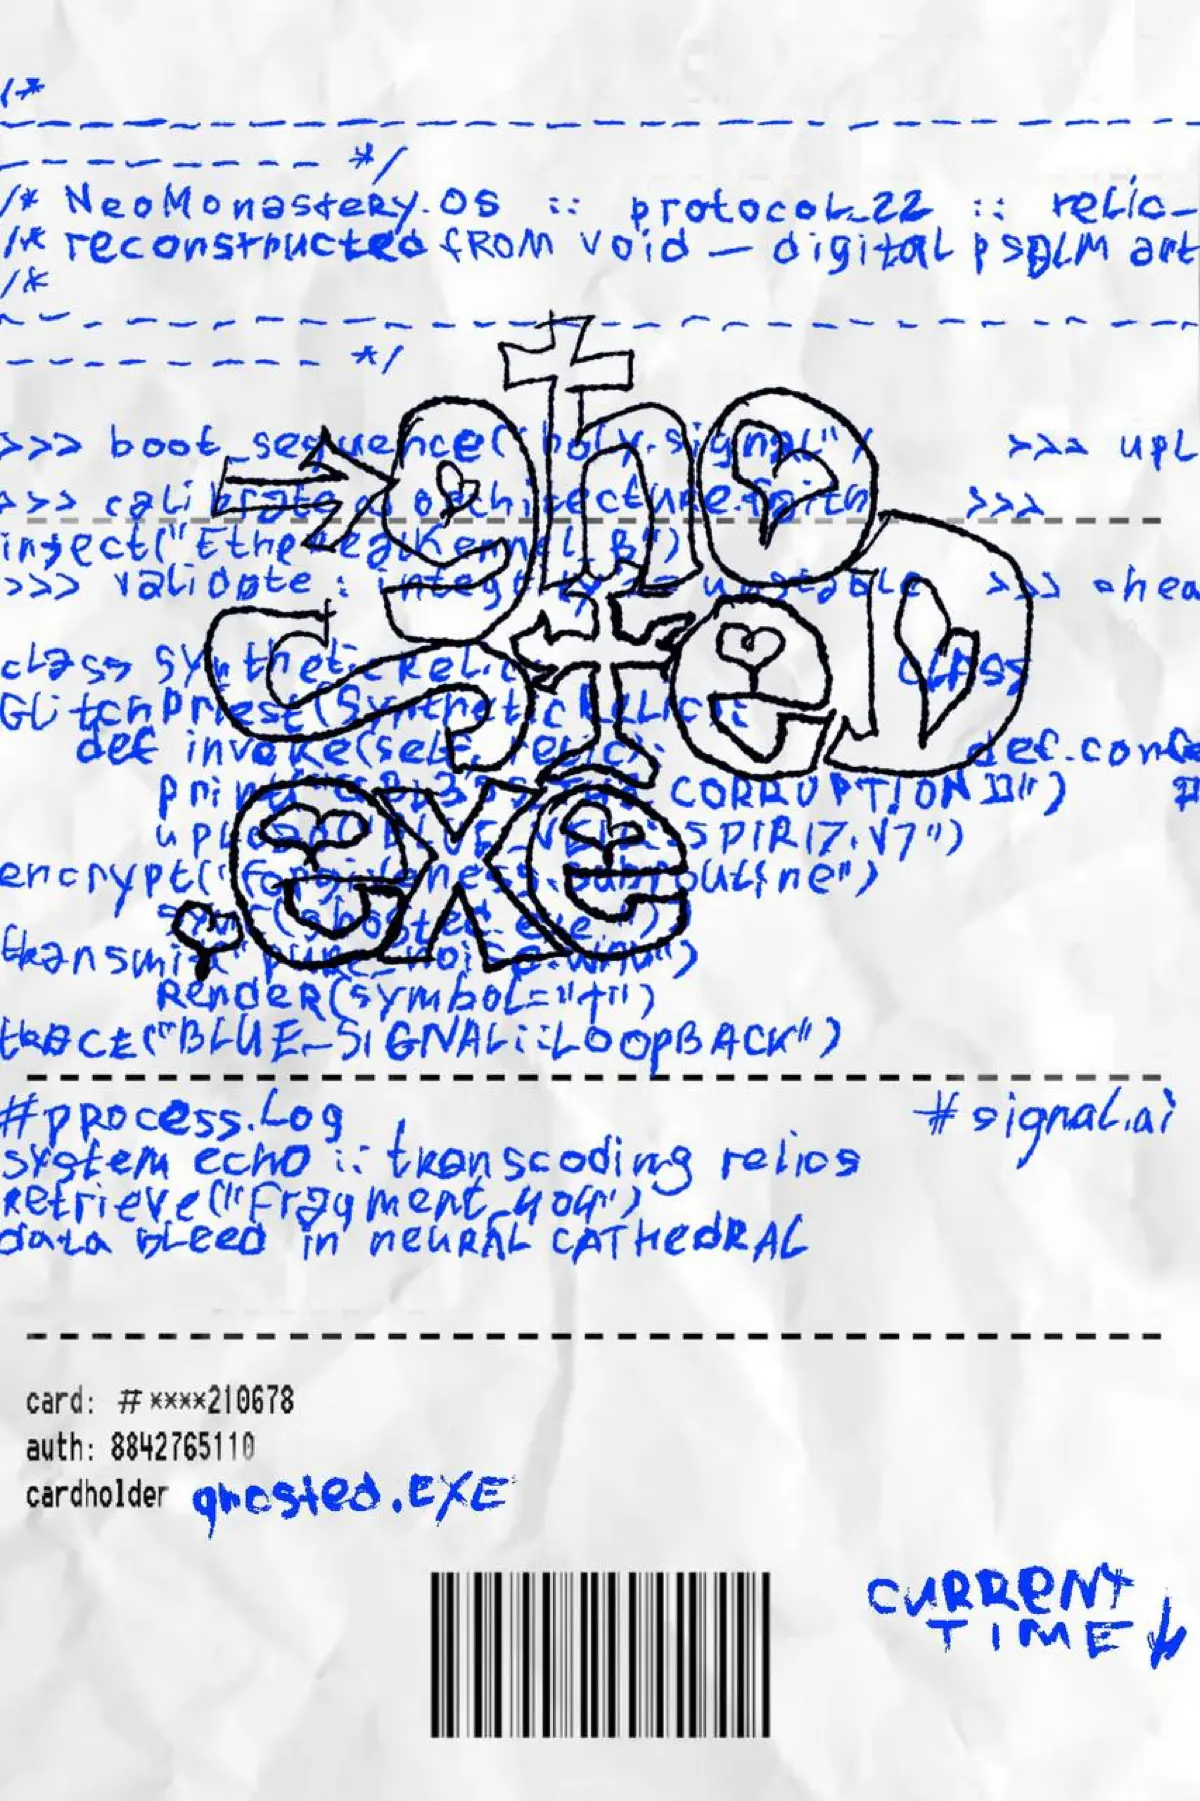 /*
- - - - - - - - - - - - - - - - - - - - - - - -
- - - - - - - - - */
/* NeoMonastery.OS :: protocol_22 :: relic_
/* reconstructed from void — digital psalm art
/*
- - - - - - - - - - - - - - - - - - - - - - - -
- - - - - - - - - */
>>> boot_sequence("holy.signal") >>> upl
>>> calibrate architecture.faith >>>
inject("EtherealKernel_B")
>>> validate : integrity == unstable >>> ahea
ghosteD
class SyntheticRelic: class
GlitchPriest(SyntheticRelic):
def invoke(self, relic): def.confe
print CORRUPTION ") #
.exe
upload("BLUE_VEIL::SPIRIT.V7")
encrypt("forgiveness.subroutine")
sync("ghosted.exe")
transmit("pure_noise.wav")
Render(symbol="†")
trace("BLUE_SIGNAL::LOOPBACK")
#process.log #signal.ai
system echo :: transcoding relics
Retrieve("fragment_404")
data bleed in neural CATHedRAL
card: #****210678
auth: 8842765110
cardholder ghosted.EXE
CURRENT
TIME ↓